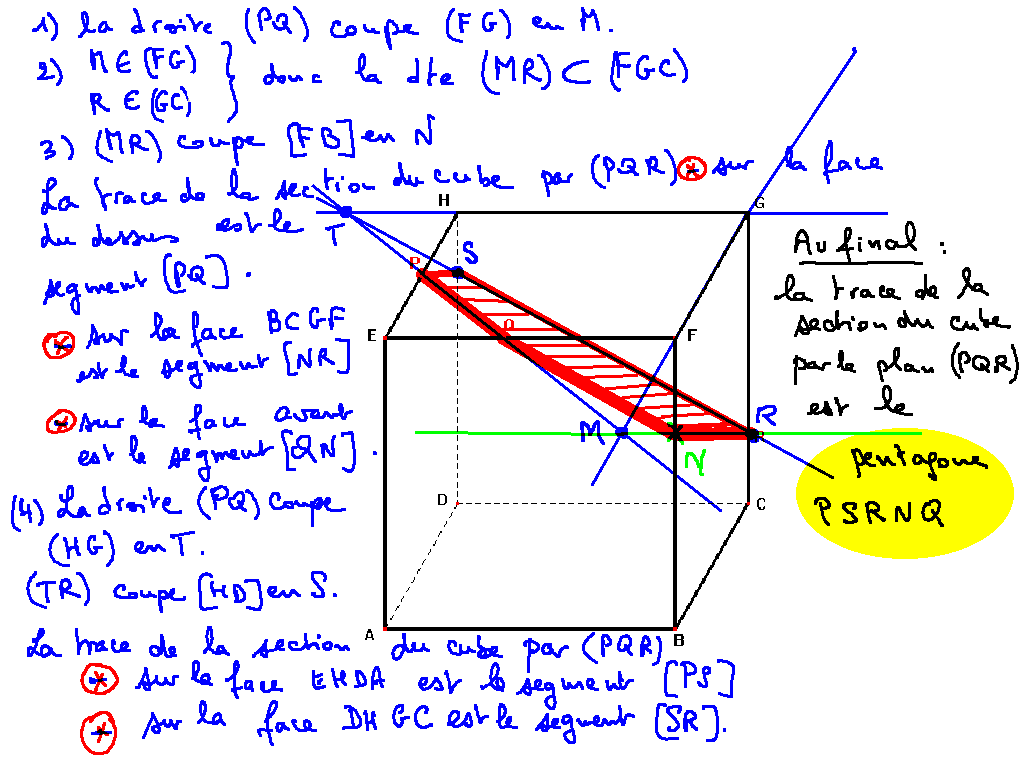 1) la droite (PQ) coupe (FG) en M.
2) M ∈ (FG)
R ∈ (GC) } donc la dte (MR) ⊂ (FGC)
3) (MR) coupe [FB] en N
La trace de la section du cube par (PQR) * sur la face
du dessus est le
segment [PQ].
* sur la face BCGF
est le segment [NR]
* sur la face avant
est le segment [QN].
(4) La droite (PQ) coupe
(HG) en T.
(TR) coupe [HD] en S.
La trace de la section du cube par (PQR)
* sur la face EHDA est le segment [PS]
* sur la face DHGC est le segment [SR].
H
G
T
P
S
E
Q
F
M
N
R
D
C
A
B
Au final :
la trace de la
section du cube
par le plan (PQR)
est le
pentagone
PSRNQ